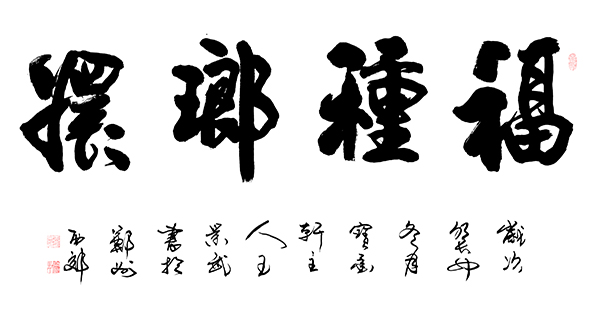 福種瑯嬛
歲次
癸卯
冬月
寶墨
軒主
人王
景武
書於
鄭州
西郊